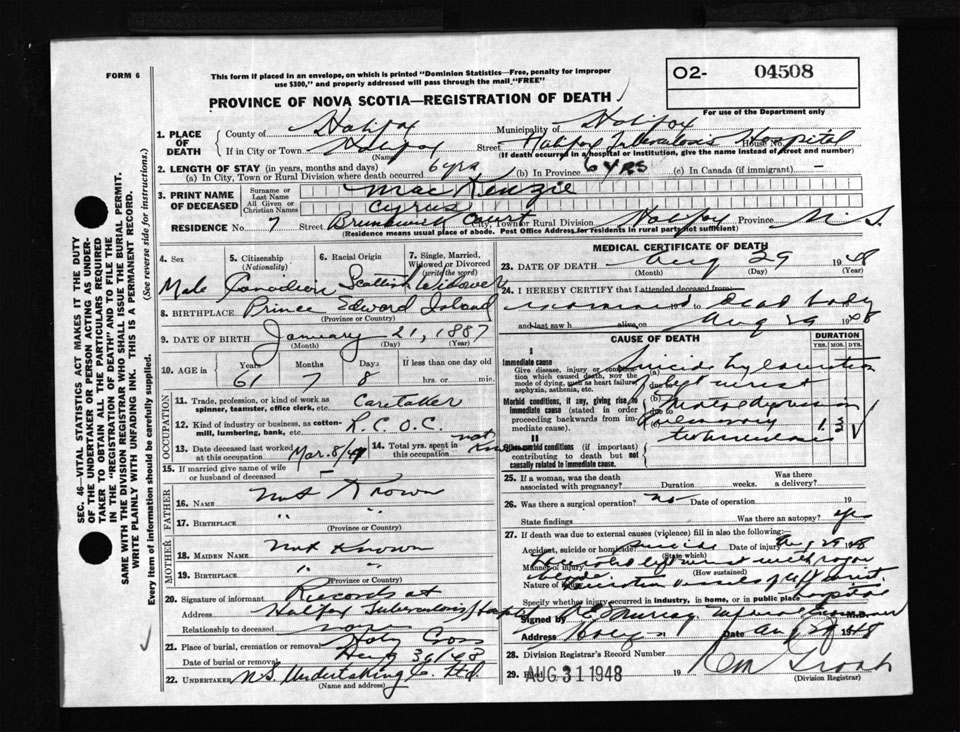 FORM 6
This form if placed in an envelope, on which is printed "Dominion Statistics—Free, penalty for improper
use $300," and properly addressed will pass through the mail "FREE"
O2- 04508
For use of the Department only
PROVINCE OF NOVA SCOTIA—REGISTRATION OF DEATH
1. PLACE OF DEATH County of Halifax Municipality of Halifax
If in City or Town Halifax (Name) Street Halifax Tuberculosis Hospital House No.
(If death occurred in a hospital or institution, give the name instead of street and number)
2. LENGTH OF STAY (in years, months and days)
(a) In City, Town or Rural Division where death occurred 6 yrs (b) In Province 6 YRS (c) In Canada (if immigrant) —
3. PRINT NAME OF DECEASED Surname or Last Name MacKenzie
All Given or Christian Names Cyrus
RESIDENCE No. 7 Street Brunswick Court City, Town or Rural Division Halifax Province N.S.
(Residence means usual place of abode. Post Office Address for residents in rural parts not sufficient)
4. Sex Male
5. Citizenship (Nationality) Canadian
6. Racial Origin Scottish
7. Single, Married, Widowed or Divorced (write the word) Widower
8. BIRTHPLACE Prince Edward Island
(Province or Country)
9. DATE OF BIRTH January 21, 1887
(Month) (Day) (Year)
10. AGE in Years 61 Months 7 Days 8 If less than one day old hrs. or min.
OCCUPATION
11. Trade, profession or kind of work as spinner, teamster, office clerk, etc. Caretaker
12. Kind of industry or business, as cotton-mill, lumbering, bank, etc. R.C.O.C.
13. Date deceased last worked at this occupation Mar. 8/47
14. Total yrs. spent in this occupation not known
15. If married give name of wife or husband of deceased —
FATHER
16. NAME Not Known
17. BIRTHPLACE " "
(Province or Country)
MOTHER
18. MAIDEN NAME Not Known
19. BIRTHPLACE " "
(Province or Country)
20. Signature of informant Records at
Address Halifax Tuberculosis Hospital
Relationship to deceased none
21. Place of burial, cremation or removal Holy Cross
Date of burial or removal Aug 30/48
22. UNDERTAKER N.S. Undertaking Co. Ltd.
(Name and address)
MEDICAL CERTIFICATE OF DEATH
23. DATE OF DEATH Aug 29 1948
(Month) (Day) (Year)
24. I HEREBY CERTIFY that I attended deceased from
examined dead body
and last saw h alive on Aug 29 1948
CAUSE OF DEATH
DURATION
YRS. MOS. DYS.
I
Immediate cause
Give disease, injury or complication which caused death, NOT the mode of dying, such as heart failure, asphyxia, asthenia, etc.
(a) Suicide by laceration
of left wrist
Morbid conditions, if any, giving rise to immediate cause (stated in order proceeding backwards from immediate cause).
(b) depression
pulmonary
tuberculosis 1 3
II
Other morbid conditions (if important) contributing to death but not causally related to immediate cause.
25. If a woman, was the death associated with pregnancy? Duration weeks. Was there a delivery?
26. Was there a surgical operation? no Date of operation 19
State findings Was there an autopsy? yes
27. If death was due to external causes (violence) fill in also the following:
Accident, suicide or homicide? Suicide Date of injury Aug 29 1948
(State which)
Manner of injury left wrist with razor
(How sustained)
blade
Nature of injury laceration vessels of left wrist.
Specify whether injury occurred in industry, in home, or in public place hospital
Signed by M.D.
Address Date Aug 29 1948
28. Division Registrar's Record Number
29. Filed AUG 31 1948 19
(Division Registrar)
SEC. 46—VITAL STATISTICS ACT MAKES IT THE DUTY
OF THE UNDERTAKER OR PERSON ACTING AS UNDER-
TAKER TO OBTAIN ALL THE PARTICULARS REQUIRED
IN THE "REGISTRATION OF DEATH" AND TO FILE THE
SAME WITH THE DIVISION REGISTRAR WHO SHALL ISSUE THE BURIAL PERMIT.
WRITE PLAINLY WITH UNFADING INK. THIS IS A PERMANENT RECORD.
Every item of information should be carefully supplied. (See reverse side for instructions.)